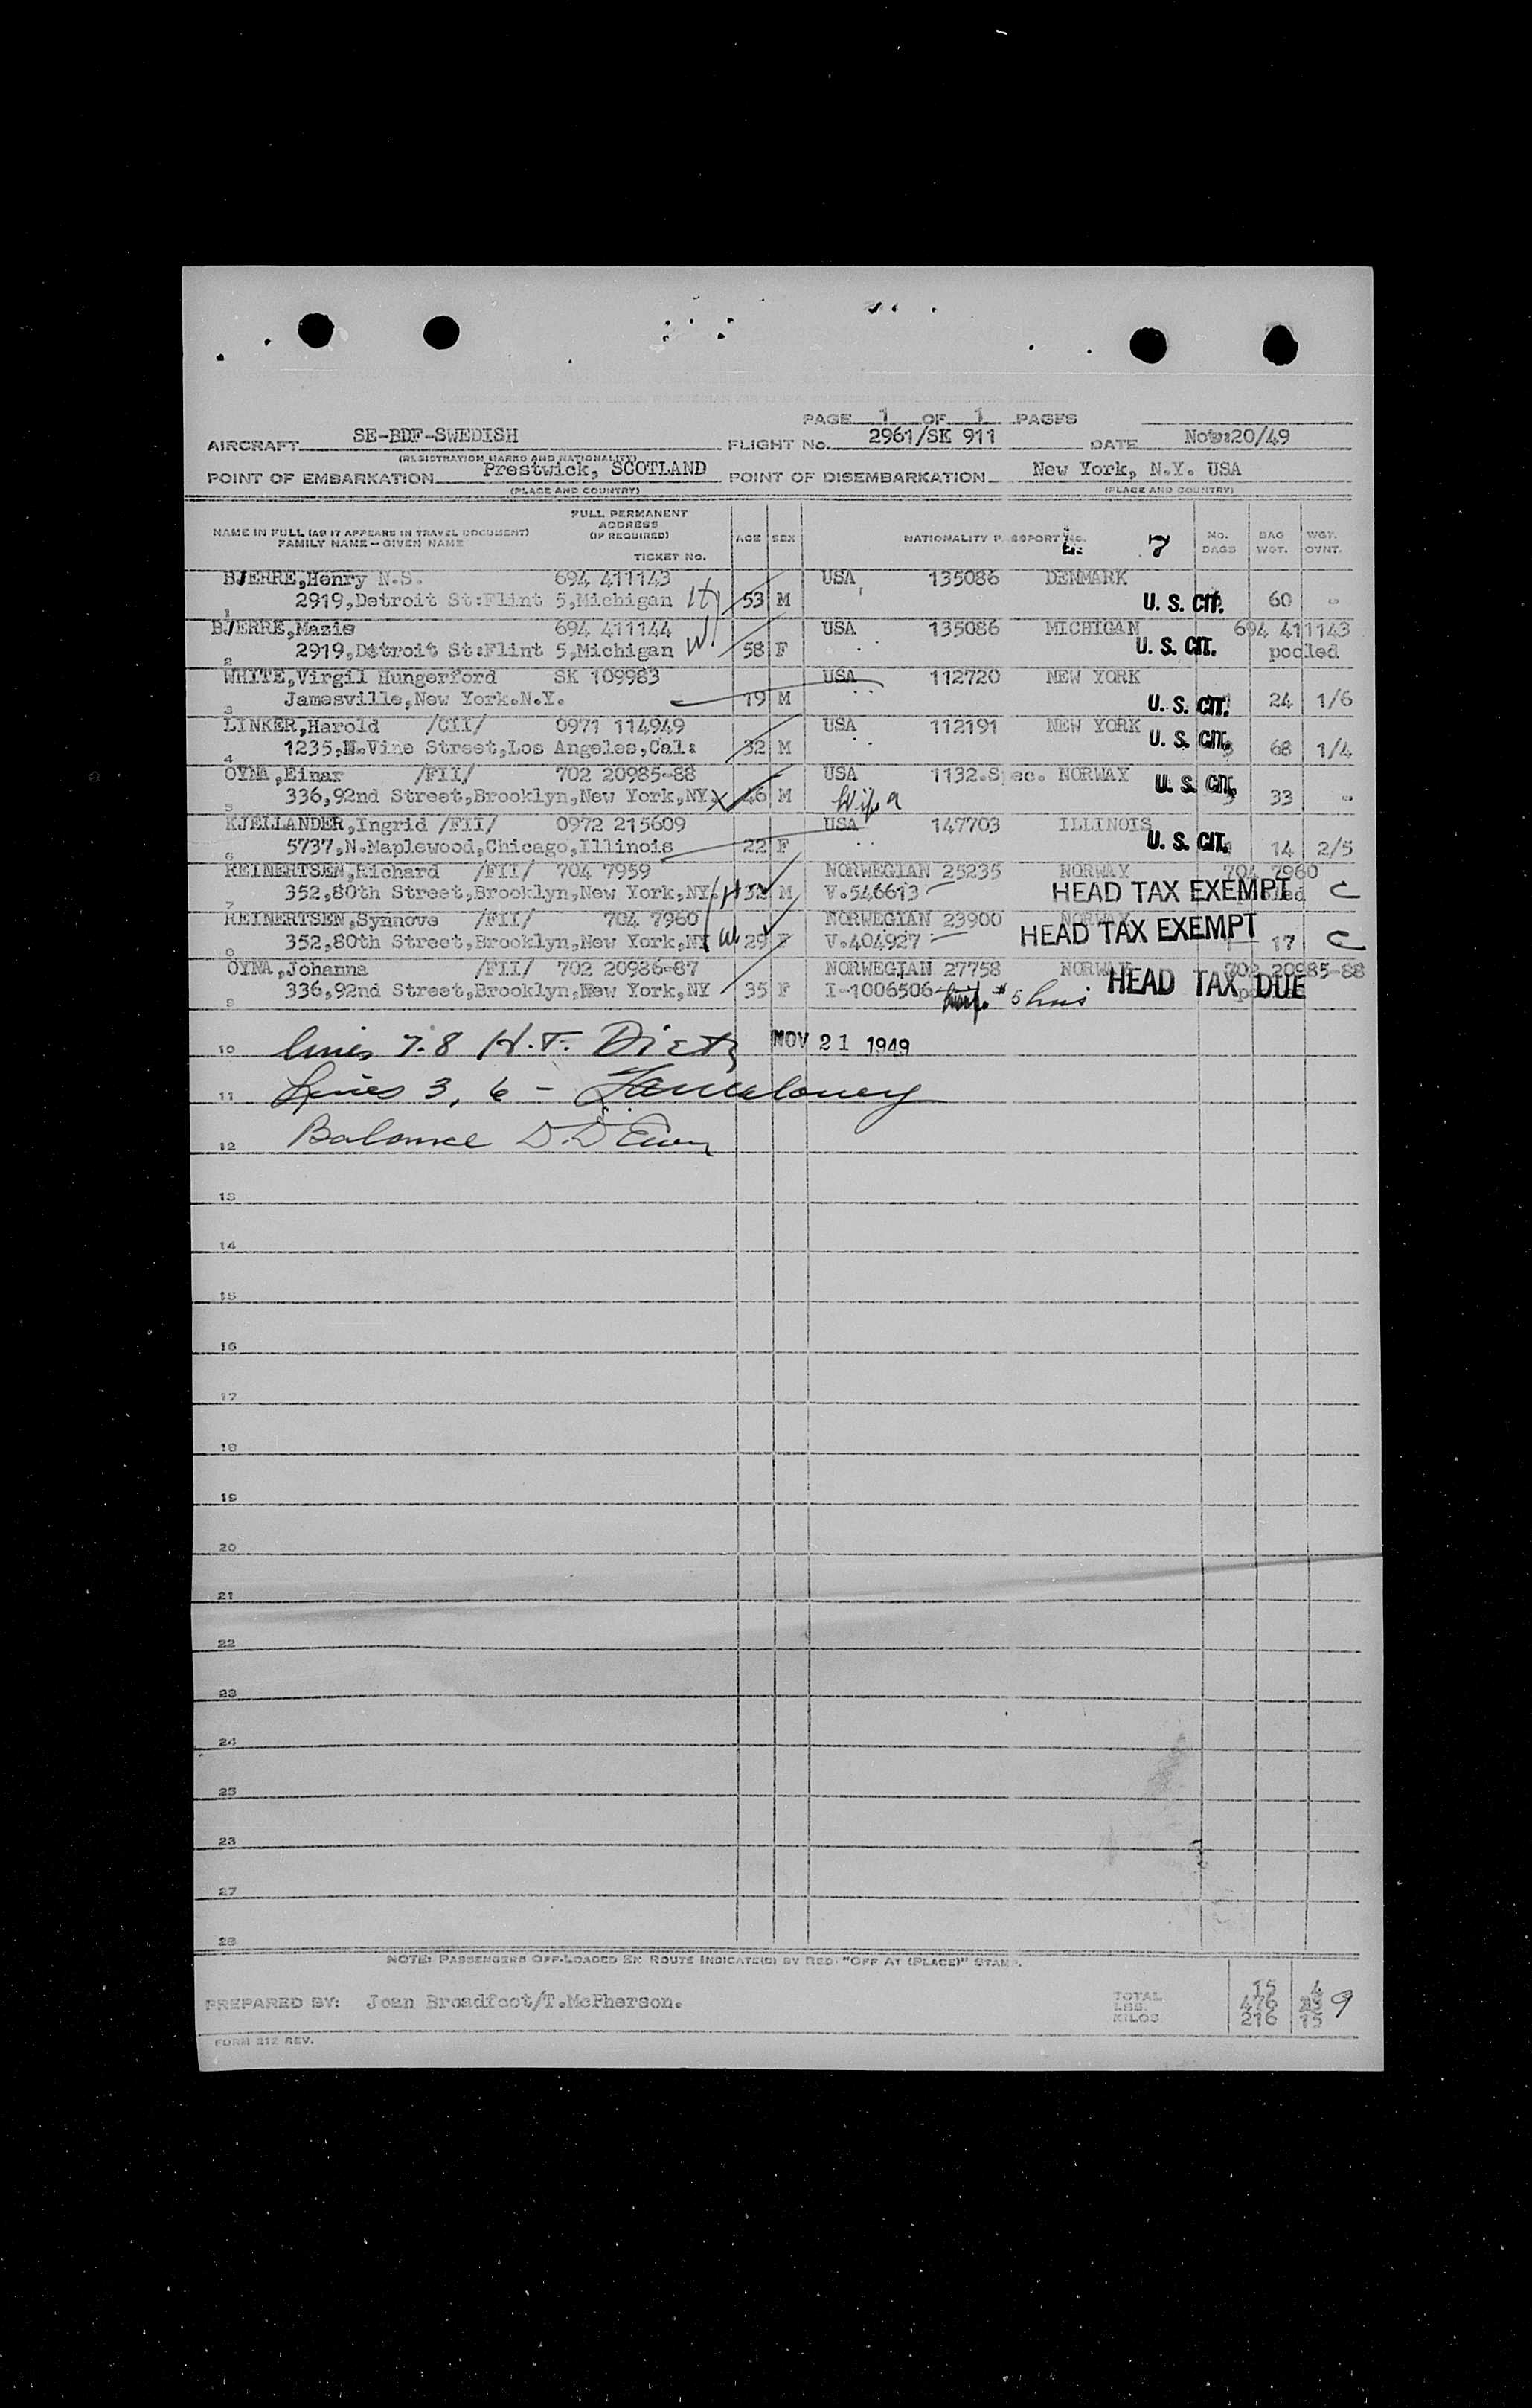 PAGE 1 OF 1 PAGES
AIRCRAFT SE-BDF-SWEDISH FLIGHT No. 2961/SK 911 DATE Nov:20/49
(REGISTRATION MARKS AND NATIONALITY)
POINT OF EMBARKATION Prestwick, SCOTLAND POINT OF DISEMBARKATION New York, N.Y. USA
(PLACE AND COUNTRY) (PLACE AND COUNTRY)
NAME IN FULL (AS IT APPEARS IN TRAVEL DOCUMENT) FULL PERMANENT ADDRESS (IF REQUIRED) AGE SEX NATIONALITY PASSPORT No. 7 NO. BAGS BAG WGT. WGT. OVNT.
FAMILY NAME—GIVEN NAME TICKET NO.
BJERRE,Henry N.S. 694 411143 USA 135086 DENMARK
1 2919,Detroit St:Flint 5,Michigan H 53 M U. S. CIT. 60 -
BJERRE,Mazie 694 411144 USA 135086 MICHIGAN 694 411143
2 2919,Detroit St:Flint 5,Michigan W 58 F U. S. CIT. pooled
WHITE,Virgil Hungerford SK 109983 USA 112720 NEW YORK
3 Jamesville,New York.N.Y. 19 M U. S. CIT. 24 1/6
LINKER,Harold /CII/ 0971 114949 USA 112191 NEW YORK
4 1235,N.Vine Street,Los Angeles,Cal: 32 M U. S. CIT. 68 1/4
OYNA,Einar /FII/ 702 20985-88 USA 1132.Spec. NORWAY
5 336,92nd Street,Brooklyn,New York,NY. X 46 M Wife 9 U. S. CIT. 3 33 -
KJELLANDER,Ingrid /FII/ 0972 215609 USA 147703 ILLINOIS
6 5737,N.Maplewood,Chicago,Illinois 22 F U. S. CIT. 14 2/5
REINERTSEN,Richard /FII/ 704 7959 NORWEGIAN 25235 NORWAY 704 7960
7 352,80th Street,Brooklyn,New York,NY. H 32 M V.546613 HEAD TAX EXEMPT C
REINERTSEN,Synnove /FII/ 704 7960 NORWEGIAN 23900 NORWAY
8 352,80th Street,Brooklyn,New York,NY W 29 F V.404927 HEAD TAX EXEMPT 17 C
OYNA,Johanna /FII/ 702 20986-87 NORWEGIAN 27758 NORWAY 702 20985-88
9 336,92nd Street,Brooklyn,New York,NY 35 F I-1006506 HEAD TAX DUE
10 lines 7.8 H.F. Dietz NOV 21 1949
11 Lines 3, 6 -
12 Balance D.D
13
14
15
16
17
18
19
20
21
22
23
24
25
26
27
28
NOTE: PASSENGERS OFF-LOADED EN ROUTE INDICATE(D) BY RED "OFF AT (PLACE)" STAMP.
PREPARED BY: Joan Broadfoot/T.McPherson.
TOTAL 15 4
LBS. 476 9
KILOS 216 15
FORM 212 REV.